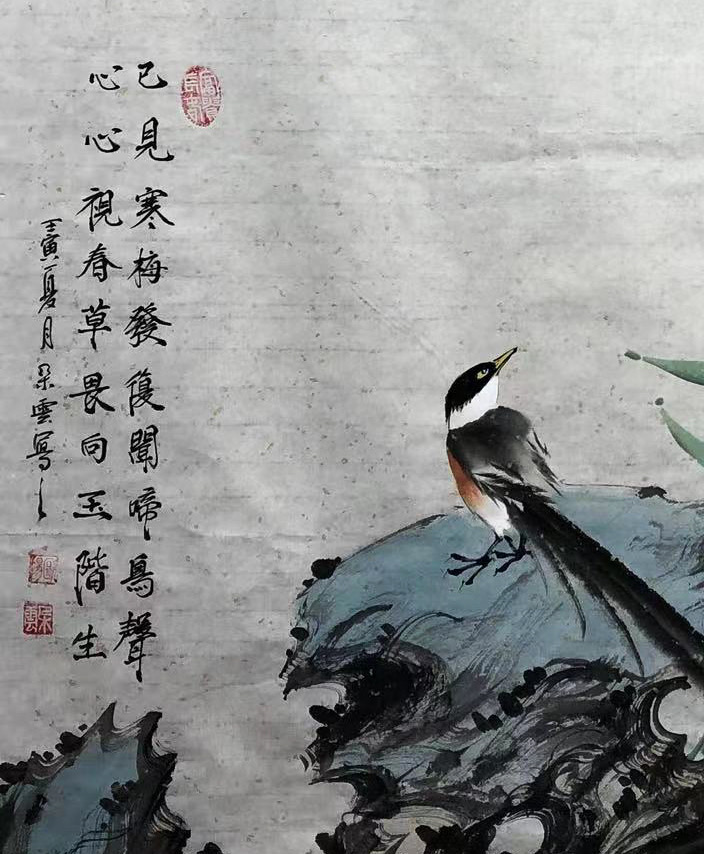 已見寒梅發復聞啼鳥聲
心心視春草畏向玉階生
壬寅夏月朵雲寫之
朵雲